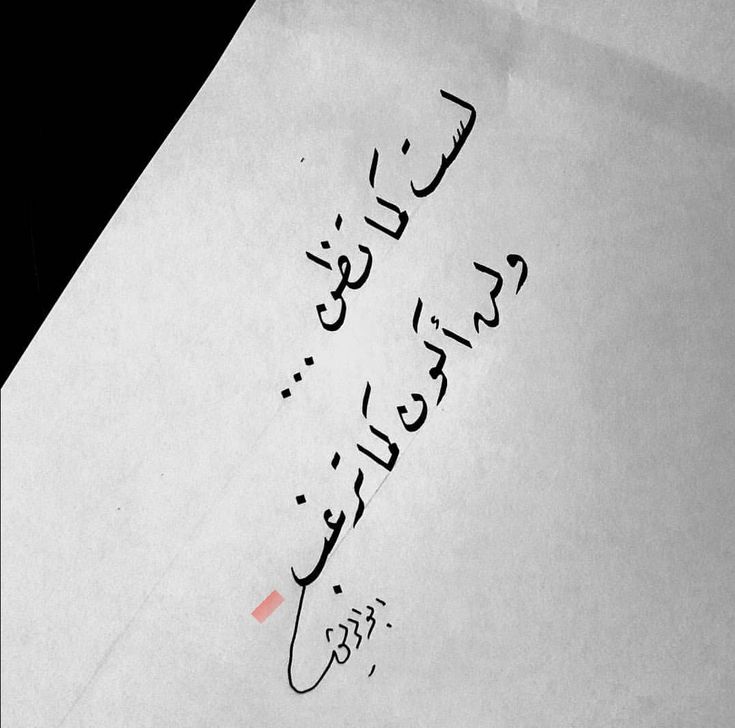 لست كما تظن ...
ولن أكون كما ترغب